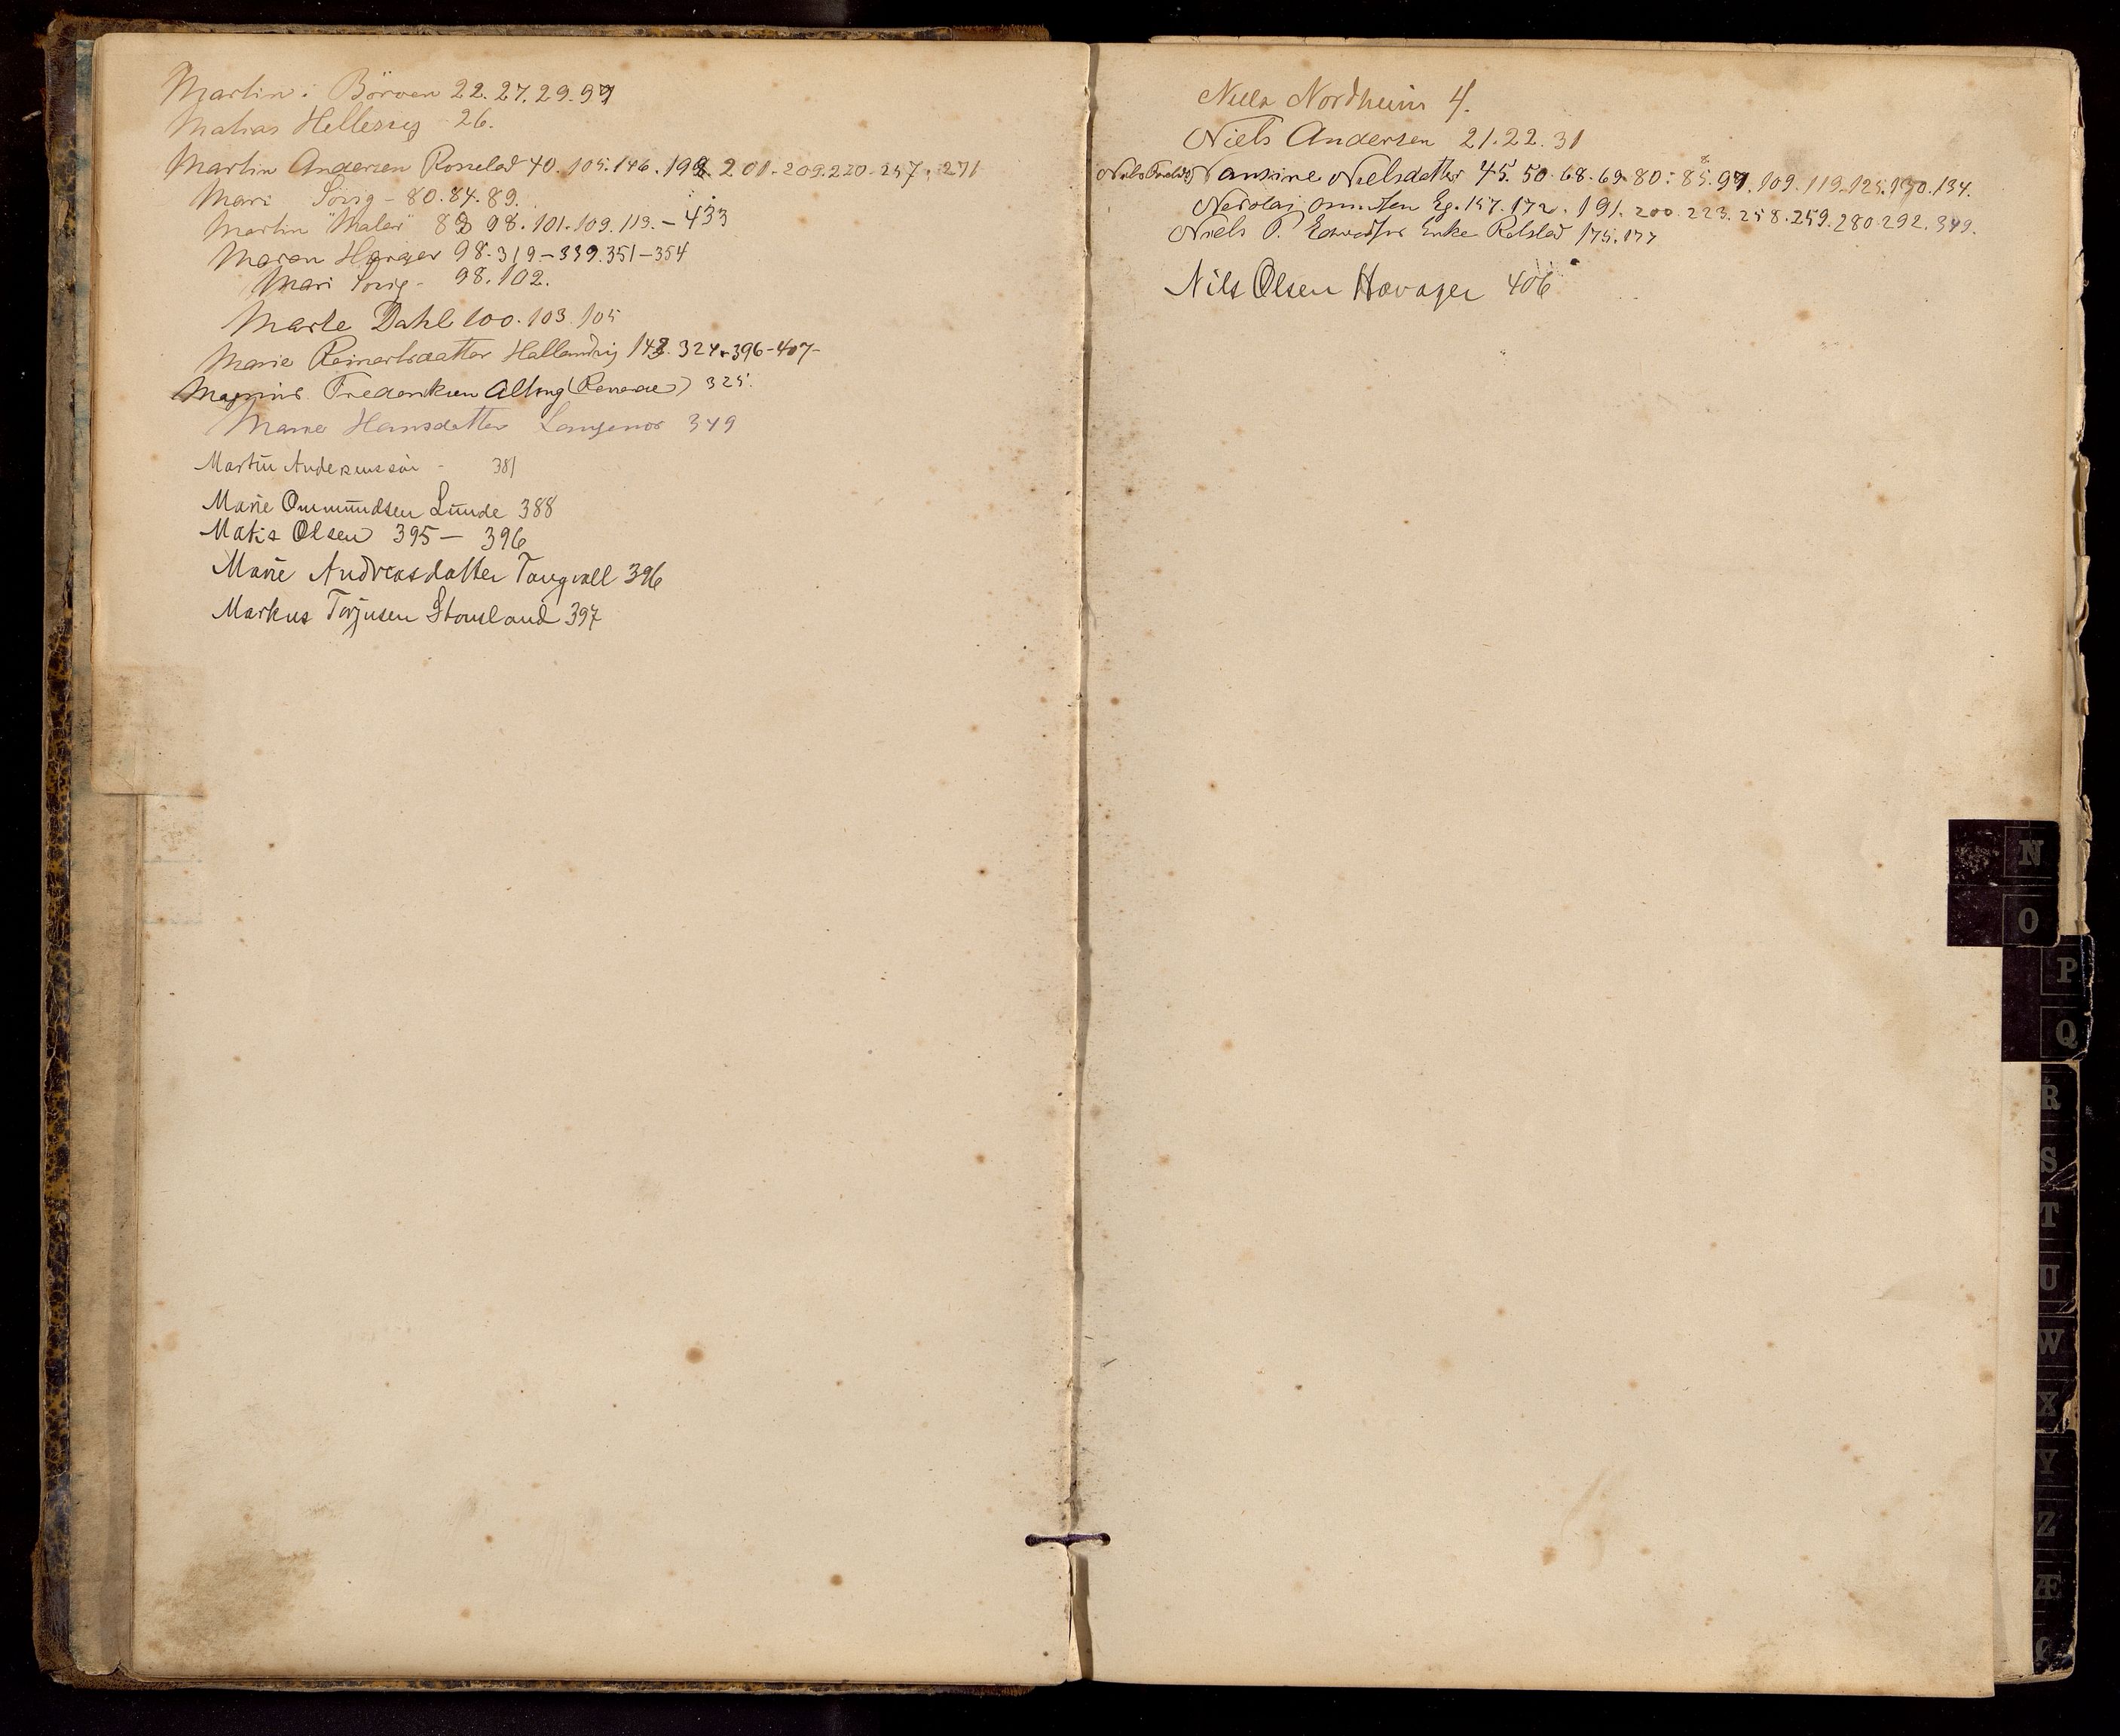 Martin i Börven 22. 27. 29. 97
Matias Hellesvig 26.
Martin Andersen Rosselad 40. 105. 146. 198. 201. 209. 220. 257. 271
Mari Sörig - 80. 84. 89.
Martin "Maler" 88 98. 101. 109. 113. - 433
Maren Havager 98. 319 - 339. 351 - 354
Mari Sörig - 98. 102.
Marte Dahl 100. 103. 105
Marie Reinertsdatter Hallandvig 148. 324 - 396 - 407 -
Magnus Frederiksen 325.
Marie Hansdatter Langenes 349
Martin Andersensön - 381
Marie Ommundsen Lunde 388
Matis Olsen 395 - 396
Marie Andreasdatter Tangvall 396
Markus Torjusen Stousland 397
Niels Nordheim 4.
Niels Andersen 21. 22. 31
Nansine Nielsdatter 45. 50. 68. 69. 80. 85. 97. 109. 119. 125. 130. 134.
Nicolai Omutsen Eg. 157. 172. 191. 200. 223. 258. 259. 280. 292. 349.
Niels P. Enke Rolstad 175. 177
Nils Olsen Havager 406
N
O
P
Q
R
S
T
U
W
X
Y
Z
Æ